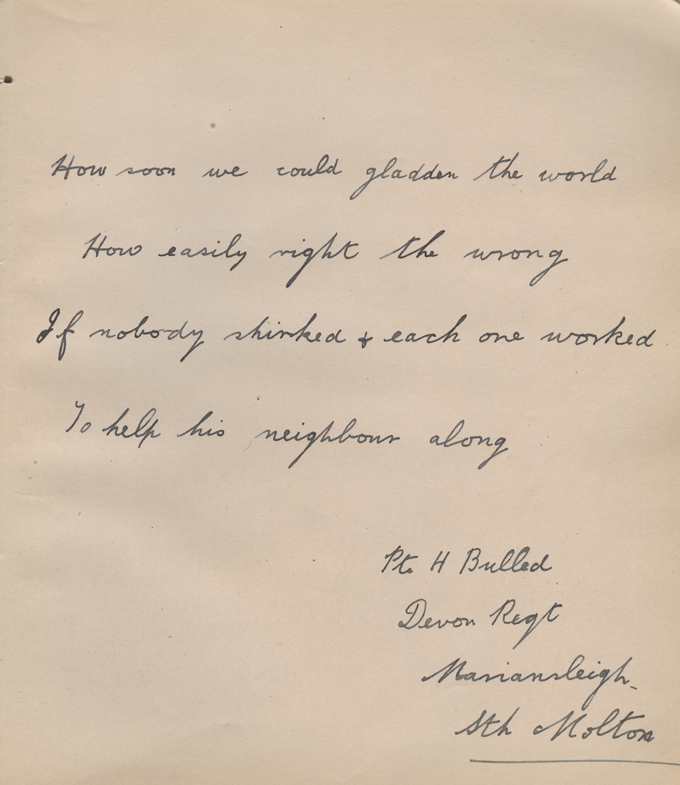 How soon we could gladden the world
How easily right the wrong
If nobody shirked & each one worked
To help his neighbour along
Pte H Bulled
Devon Regt
Mariansleigh
Sth Molton